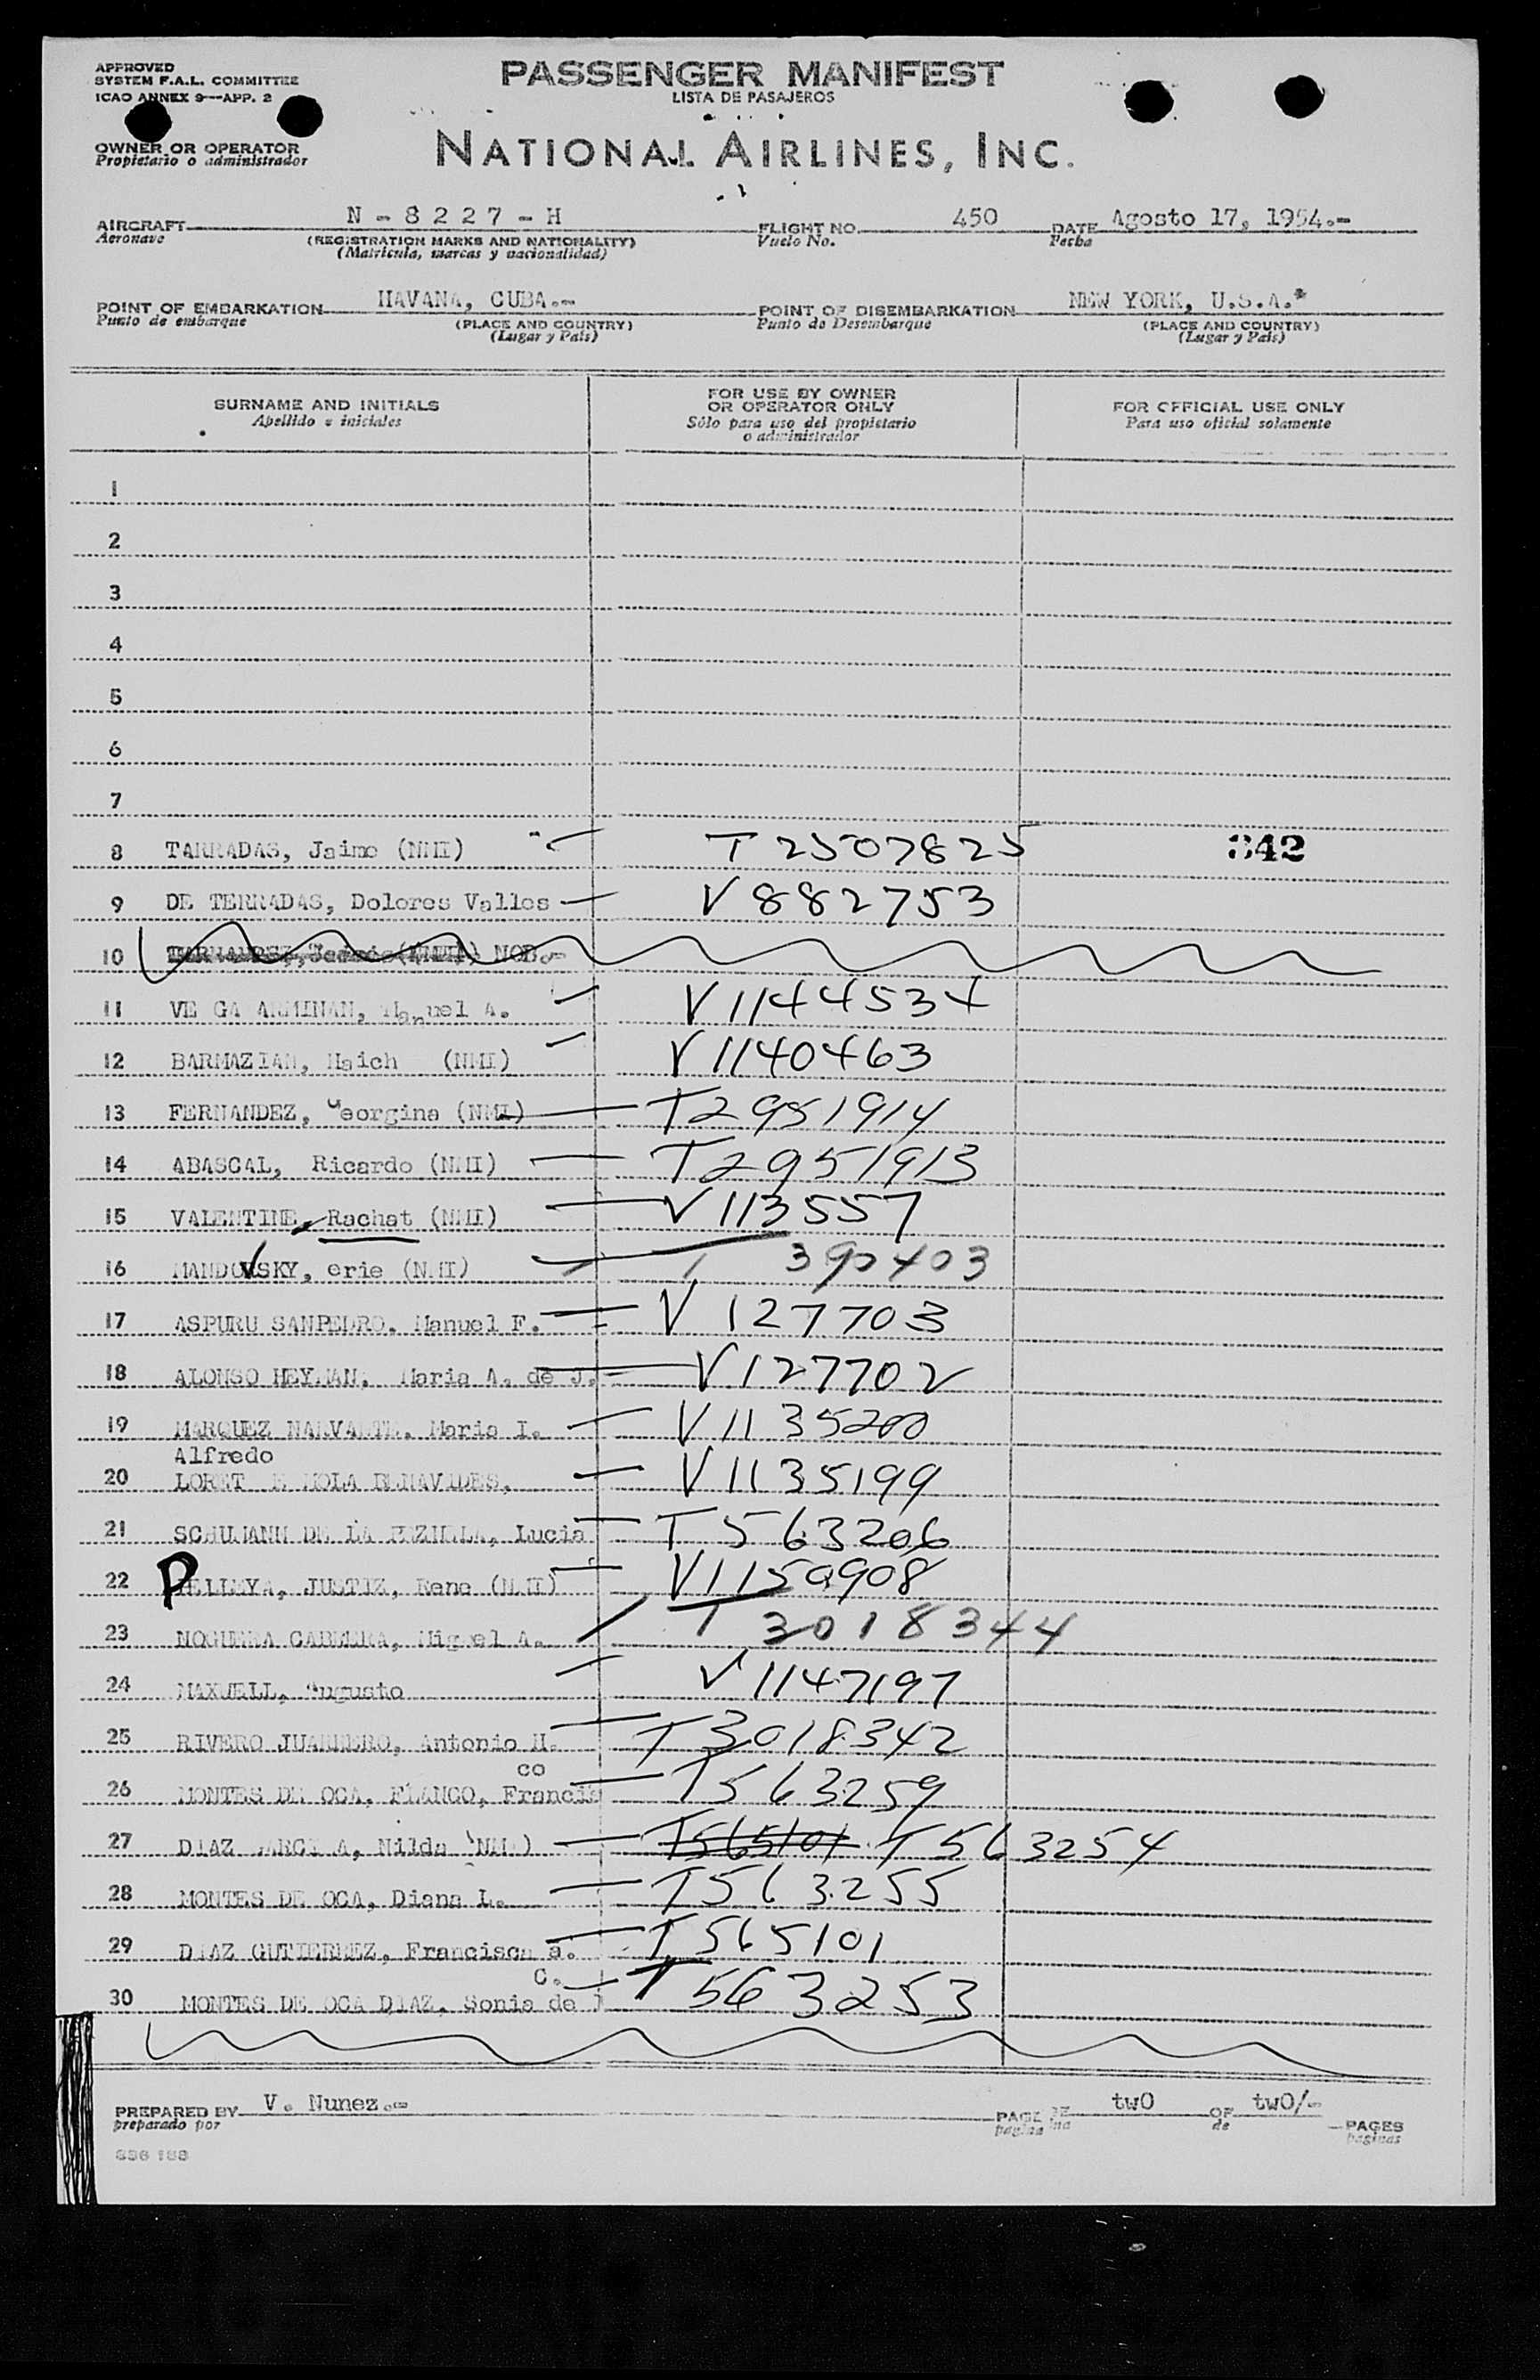 APPROVED
SYSTEM F.A.L. COMMITTEE
ICAO ANNEX 9—APP. 2
PASSENGER MANIFEST
LISTA DE PASAJEROS
OWNER OR OPERATOR
Propietario o administrador
NATIONAL AIRLINES, INC.
AIRCRAFT N - 8 2 2 7 - H FLIGHT NO. 450 DATE Agosto 17, 1954.-
Aeronave (REGISTRATION MARKS AND NATIONALITY) Vuelo No. Fecha
(Matricula, marcas y nacionalidad)
POINT OF EMBARKATION HAVANA, CUBA.- POINT OF DISEMBARKATION NEW YORK, U.S.A.*
Punto de embarque (PLACE AND COUNTRY) Punto de Desembarque (PLACE AND COUNTRY)
(Lugar y Pais) (Lugar y Pais)
SURNAME AND INITIALS
Apellido e iniciales
FOR USE BY OWNER
OR OPERATOR ONLY
Sólo para uso del propietario
o administrador
FOR OFFICIAL USE ONLY
Para uso oficial solamente
1
2
3
4
5
6
7
8 TARRADAS, Jaime (NMI) T 2507825 342
9 DE TERRADAS, Dolores Valles V 882753
10 NOB.-
11 VE GA ARMINAN, Manuel A. V 1144534
12 BARMAZIAN, Haich (NMI) V 1140463
13 FERNANDEZ, Georgina (NMI) T2951914
14 ABASCAL, Ricardo (NMI) T2951913
15 VALENTINE, Rachat (NMI) V 113557
16 MANDOVSKY, erie (NMI) 390403
17 ASPURU SANPEDRO, Manuel F. V 127703
18 ALONSO HEYMAN, Maria A. de J. V 127702
19 MARQUEZ Maria I. V 1135200
Alfredo
20 LORET E MOLA BENAVIDES, V 1135199
21 SCHUMANN DE LA PEZUELA, Lucia T 563206
22 PELLEYA, JUSTIZ, Rene (NMI) V1150908
23 NOGUERA CABRERA, Miguel A. T 3018344
24 MAXWELL, Augusto V 1147197
25 RIVERO JUARRERO, Antonio H. T 3018342
co
26 MONTES DE OCA, FLANCO, Francis T563259
27 DIAZ GARCIA, Nilda (NMI) T565101 T563254
28 MONTES DE OCA, Diana L. T563255
29 DIAZ GUTIERREZ, Francisca a. T565101
C.
30 MONTES DE OCA DIAZ, Sonia de l T 563253
PREPARED BY V. Nunez.- PAGE twO OF twO/- PAGES
preparado por pagina de paginas